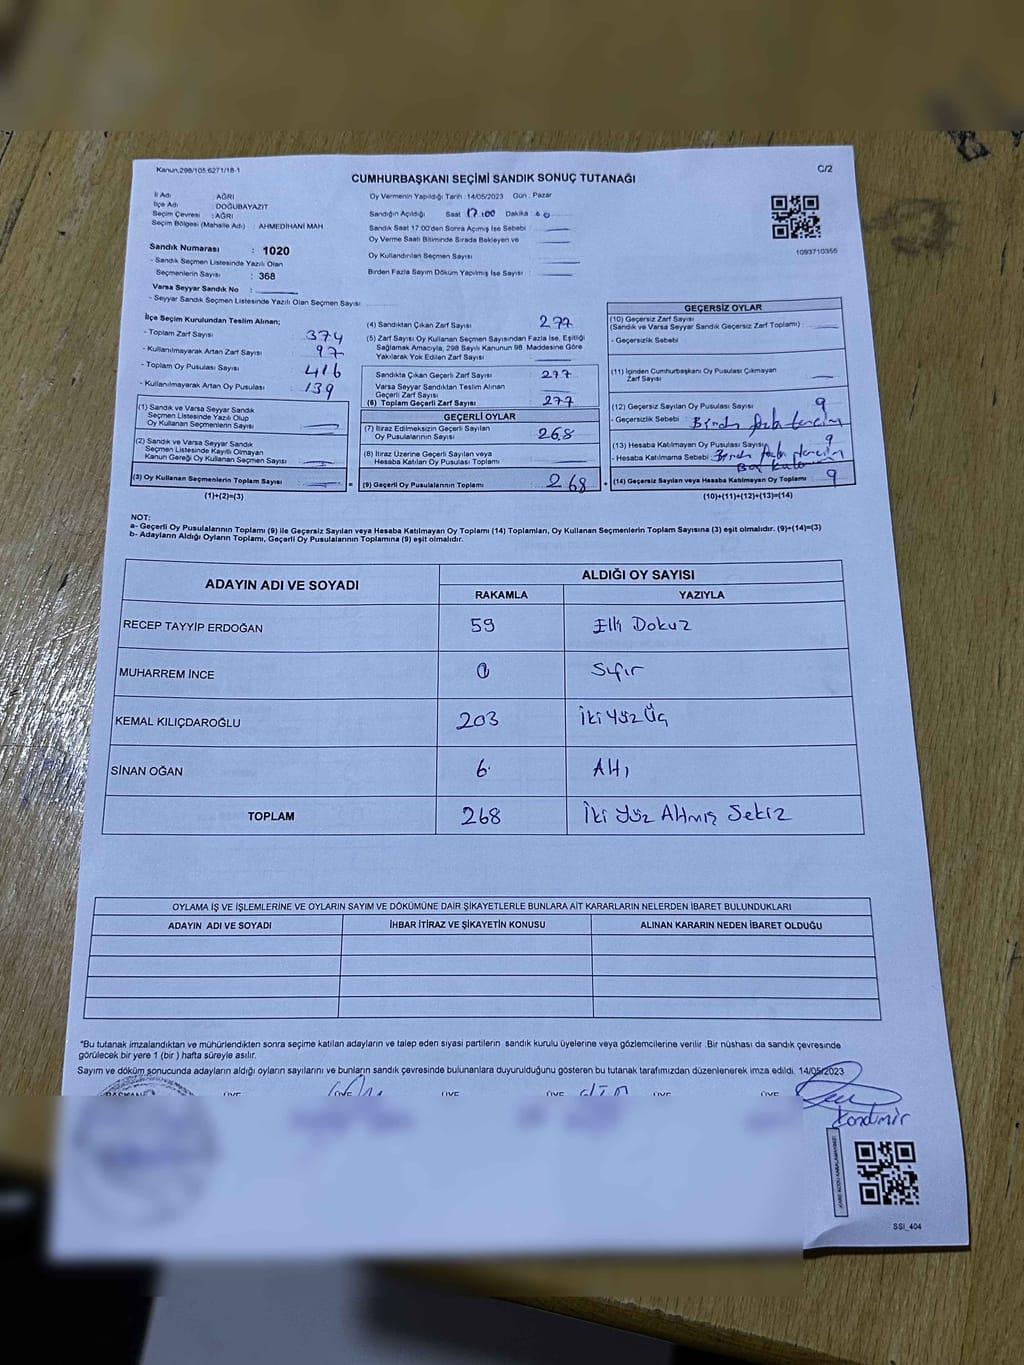 Kanun,298/105,6271/18-1
C/2
CUMHURBAŞKANI SEÇİMİ SANDIK SONUÇ TUTANAĞI
İl Adı : AĞRI
İlçe Adı : DOĞUBAYAZIT
Seçim Çevresi : AĞRI
Seçim Bölgesi (Mahalle Adı) : AHMEDİHANİ MAH
Sandık Numarası : 1020
- Sandık Seçmen Listesinde Yazılı Olan
Seçmenlerin Sayısı : 368
Varsa Seyyar Sandık No :
- Seyyar Sandık Seçmen Listesinde Yazılı Olan Seçmen Sayısı
Oy Vermenin Yapıldığı Tarih : 14/05/2023 Gün : Pazar
Sandığın Açıldığı Saat 17.00 Dakika
Sandık Saat 17.00'den Sonra Açılmış İse Sebebi :
Oy Verme Saati Bitiminde Sırada Bekleyen ve
Oy Kullandırılan Seçmen Sayısı :
Birden Fazla Sayım Döküm Yapılmış İse Sayısı :
1093710355
İlçe Seçim Kurulundan Teslim Alınan;
- Toplam Zarf Sayısı 374
- Kullanılmayarak Artan Zarf Sayısı 97
- Toplam Oy Pusulası Sayısı 416
- Kullanılmayarak Artan Oy Pusulası 139
(1) Sandık ve Varsa Seyyar Sandık
Seçmen Listesinde Yazılı Olup
Oy Kullanan Seçmenlerin Sayısı
(2) Sandık ve Varsa Seyyar Sandık
Seçmen Listesinde Kayıtlı Olmayan
Kanun Gereği Oy Kullanan Seçmen Sayısı
(3) Oy Kullanan Seçmenlerin Toplam Sayısı =
(1)+(2)=(3)
(4) Sandıktan Çıkan Zarf Sayısı 277
(5) Zarf Sayısı Oy Kullanan Seçmen Sayısından Fazla İse, Eşitliği
Sağlamak Amacıyla, 298 Sayılı Kanunun 98. Maddesine Göre
Yakılarak Yok Edilen Zarf Sayısı
Sandıkta Çıkan Geçerli Zarf Sayısı 277
Varsa Seyyar Sandıktan Teslim Alınan
Geçerli Zarf Sayısı
(6) Toplam Geçerli Zarf Sayısı 277
GEÇERLİ OYLAR
(7) İtiraz Edilmeksizin Geçerli Sayılan
Oy Pusulalarının Sayısı 268
(8) İtiraz Üzerine Geçerli Sayılan veya
Hesaba Katılan Oy Pusulası Toplamı
(9) Geçerli Oy Pusulalarının Toplamı 268 +
GEÇERSİZ OYLAR
(10) Geçersiz Zarf Sayısı
(Sandık ve Varsa Seyyar Sandık Geçersiz Zarf Toplamı)
- Geçersizlik Sebebi
(11) İçinden Cumhurbaşkanı Oy Pusulası Çıkmayan
Zarf Sayısı
(12) Geçersiz Sayılan Oy Pusulası Sayısı 9
- Geçersizlik Sebebi
(13) Hesaba Katılmayan Oy Pusulası Sayısı 9
- Hesaba Katılmama Sebebi
(14) Geçersiz Sayılan veya Hesaba Katılmayan Oy Toplamı 9
(10)+(11)+(12)+(13)=(14)
NOT:
a- Geçerli Oy Pusulalarının Toplamı (9) ile Geçersiz Sayılan veya Hesaba Katılmayan Oy Toplamı (14) Toplamları, Oy Kullanan Seçmenlerin Toplam Sayısına (3) eşit olmalıdır. (9)+(14)=(3)
b- Adayların Aldığı Oyların Toplamı, Geçerli Oy Pusulalarının Toplamına (9) eşit olmalıdır.
ADAYIN ADI VE SOYADI
ALDIĞI OY SAYISI
RAKAMLA YAZIYLA
RECEP TAYYİP ERDOĞAN 59 Elli Dokuz
MUHARREM İNCE 0 Sıfır
KEMAL KILIÇDAROĞLU 203 İki Yüz Üç
SİNAN OĞAN 6 Altı
TOPLAM 268 İki Yüz Altmış Sekiz
OYLAMA İŞ VE İŞLEMLERİNE VE OYLARIN SAYIM VE DÖKÜMÜNE DAİR ŞİKAYETLERLE BUNLARA AİT KARARLARIN NELERDEN İBARET BULUNDUKLARI
ADAYIN ADI VE SOYADI İHBAR İTİRAZ VE ŞİKAYETİN KONUSU ALINAN KARARIN NEDEN İBARET OLDUĞU
"Bu tutanak imzalandıktan ve mühürlendikten sonra seçime katılan adayların ve talep eden siyasi partilerin sandık kurulu üyelerine veya gözlemcilerine verilir .Bir nüshası da sandık çevresinde
görülecek bir yere 1 (bir ) hafta süreyle asılır.
Sayım ve döküm sonucunda adayların aldığı oyların sayılarını ve bunların sandık çevresinde bulunanlara duyurulduğunu gösteren bu tutanak tarafımızdan düzenlenerek imza edildi. 14/05/2023
BAŞKAN ÜYE ÜYE ÜYE ÜYE ÜYE ÜYE
SSİ_404